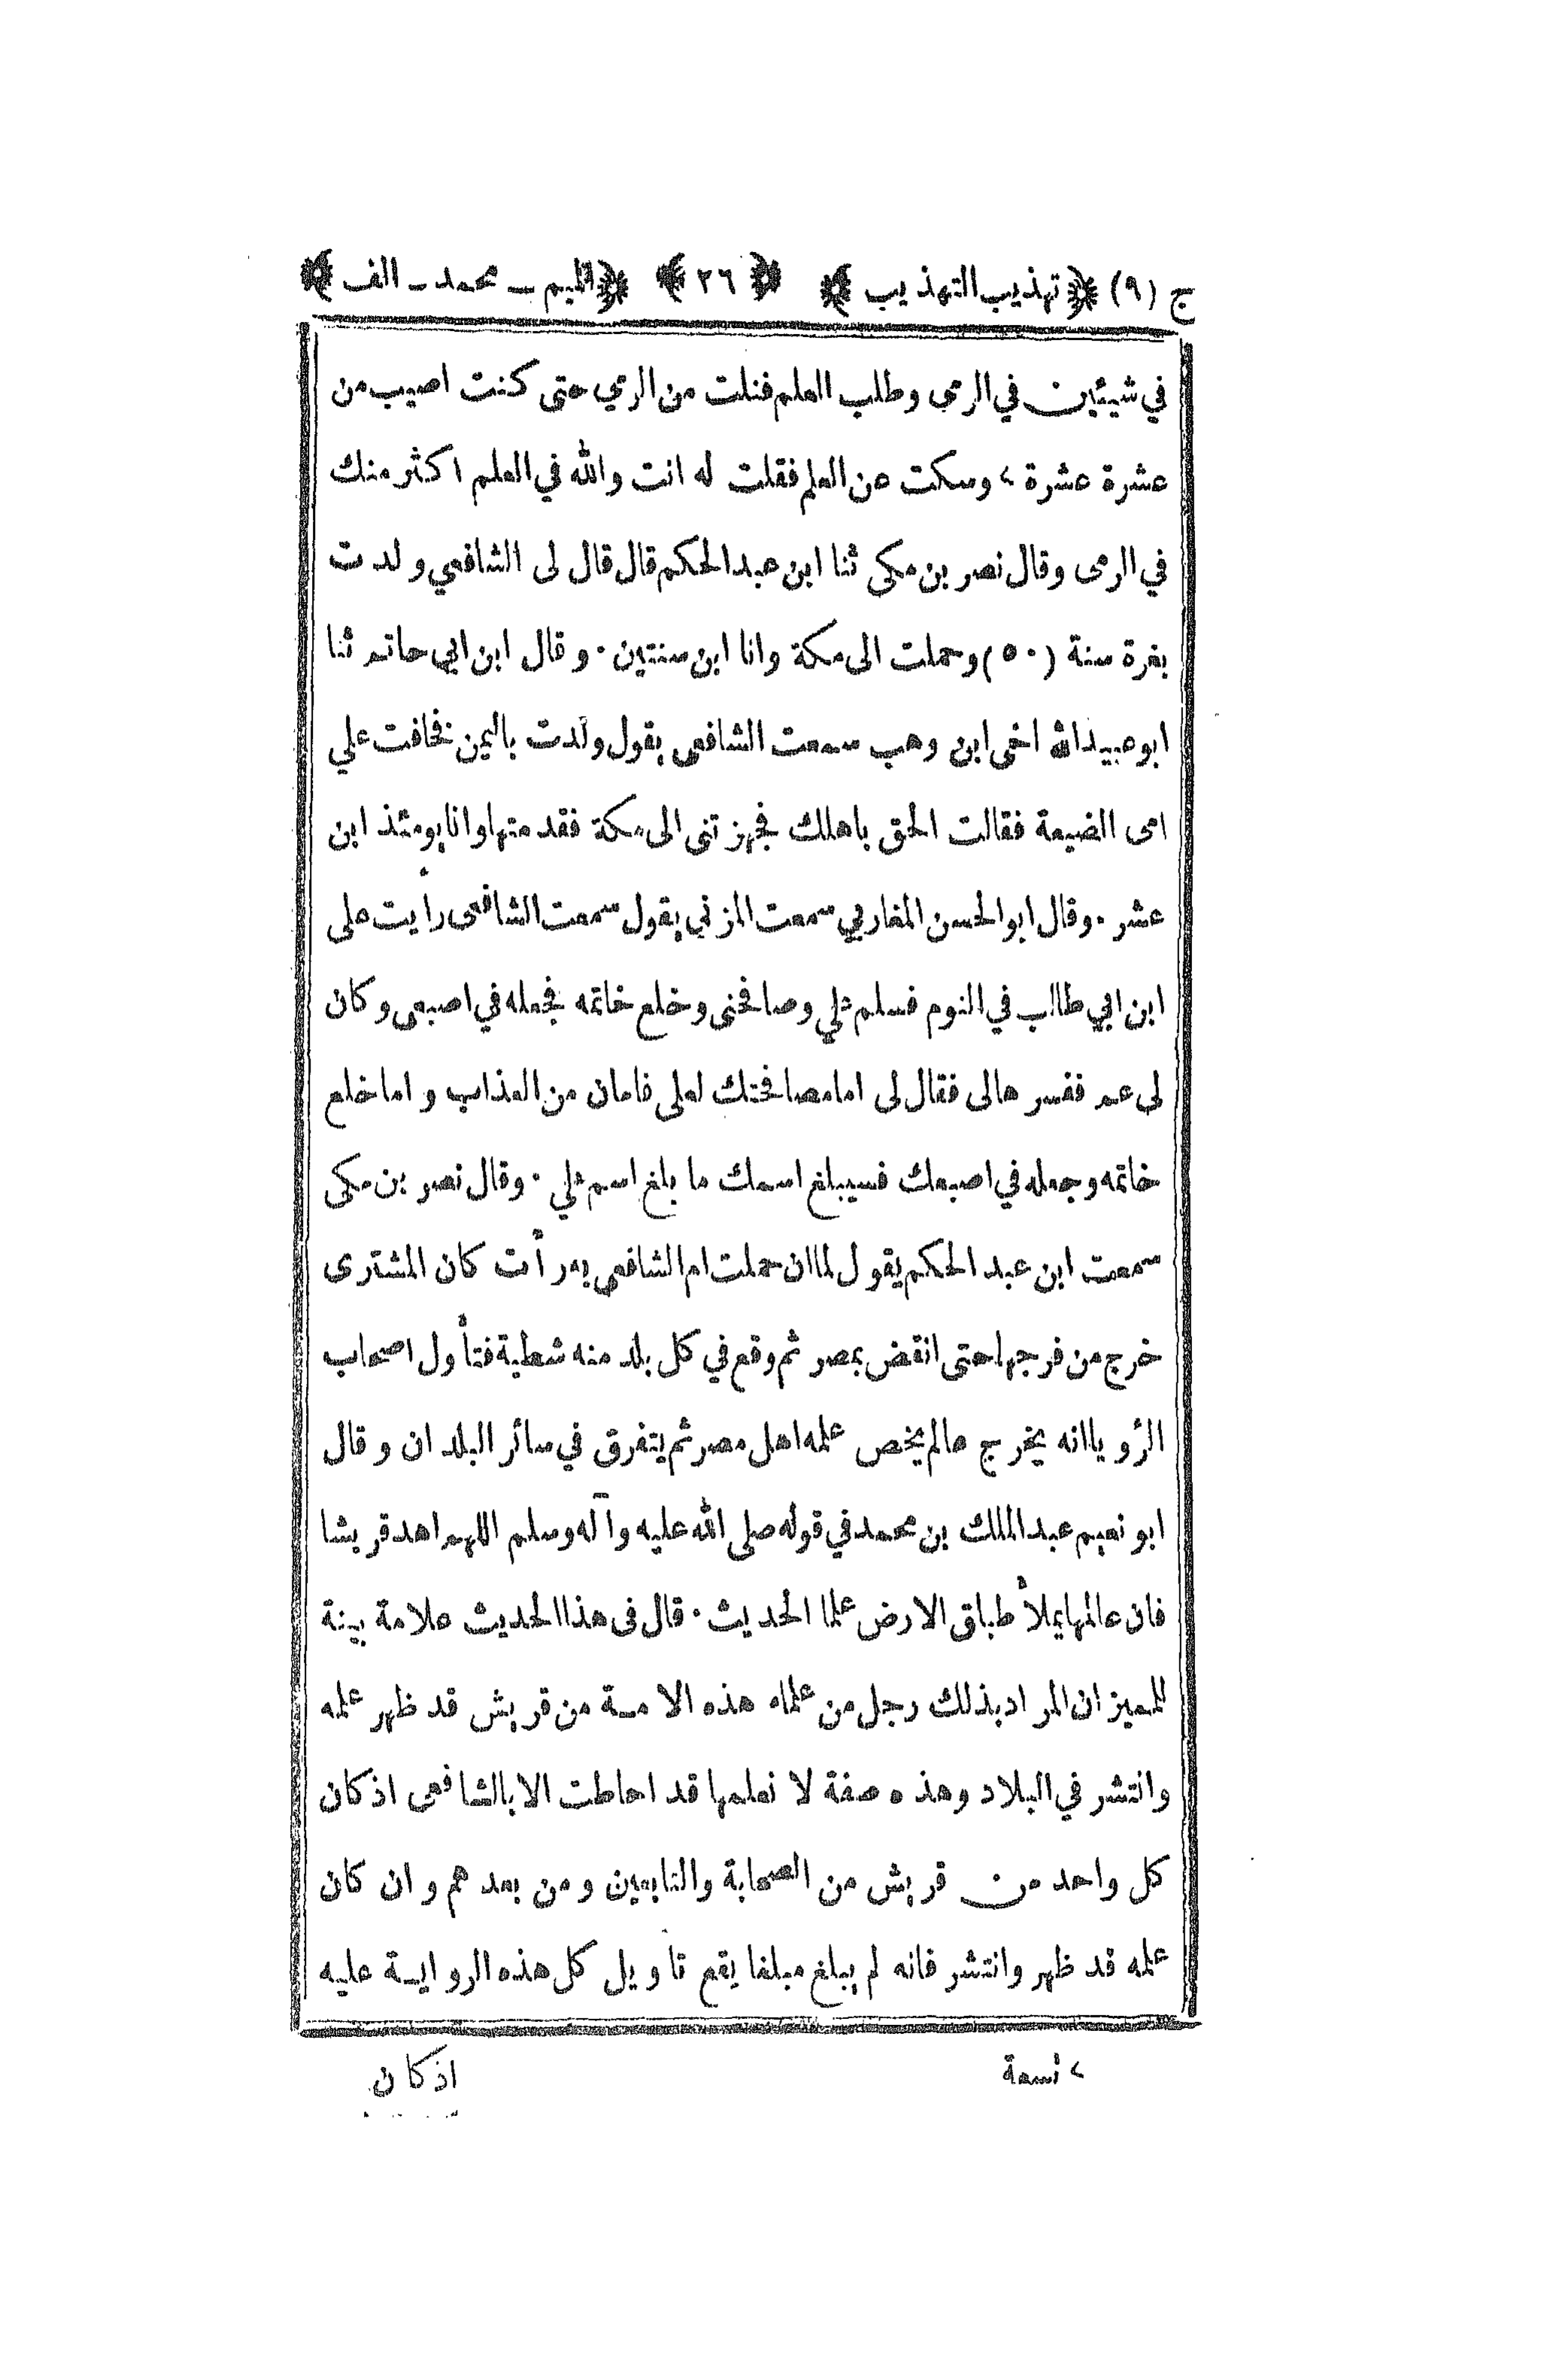 ج (٩) ﴿تهذيب التهذيب﴾ ﴿٢٦﴾ ﴿الميم ــ محمد ــ الف﴾
في شيئين في الرمى وطلب العلم فنلت من الرمي حتى كنت اصيب من
عشرة عشرة ، وسكت عن العلم فقلت له انت والله في العلم اكثر منك
في الرمى وقال نصر بن مكى ثنا ابن عبد الحكم قال قال لى الشافعي ولدت
بغزة سنة (٥٠) وحملت الى مكة وانا ابن سنتين ٠ وقال ابن ابي حاتم ثنا
ابو عبيد الله اخى ابن وهب سمعت الشافعى يقول ولدت باليمن فخافت علي
امى الضيعة فقالت الحق باهلك فجهزتنى الى مكة فقدمتها وانا يومئذ ابن
عشر ٠ وقال ابو الحسن المغاربي سمعت المزني يقول سمعت الشافعى رأيت على
ابن ابي طالب في النوم فسلم علي وصافحنى وخلع خاتمه فجعله في اصبعى وكان
لى عم ففسرها لى فقال لى اما مصافحتك لعلى فامان من العذاب واما خلع
خاتمه وجعله في اصبعك فسيبلغ اسمك ما بلغ اسم علي ٠ وقال نصر بن مكى
سمعت ابن عبد الحكم يقول لما ان حملت ام الشافعى به رأت كان المشترى
خرج من فرجها حتى انقض بمصر ثم وقع في كل بلد منه شظية فتأول اصحاب
الرؤيا انه يخرج عالم يخص علمه اهل مصر ثم يتفرق في سائر البلدان وقال
ابو نعيم عبد الملك بن محمد في قوله صلى الله عليه وآله وسلم اللهم اهد قريشا
فان عالمها يملأ طباق الارض علما الحديث ٠ قال فى هذا الحديث علامة بينة
للمميز ان المراد بذلك رجل من علماء هذه الامة من قريش قد ظهر علمه
وانتشر في البلاد وهذه صفة لا نعلمها قد احاطت الا بالشافعى اذ كان
كل واحد من قريش من الصحابة والتابعين ومن بعدهم وان كان
علمه قد ظهر وانتشر فانه لم يبلغ مبلغا يقع تاويل كل هذه الرواية عليه
، تسعة
اذ كان